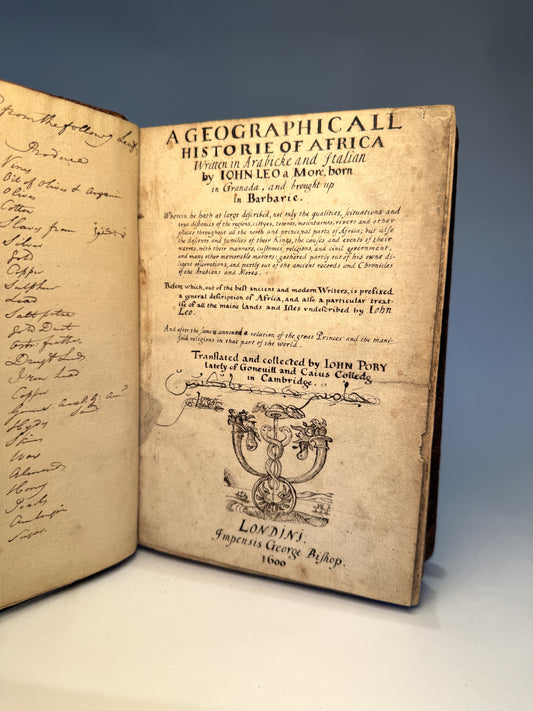 from the following Leaf
Produce
Vines
Oil of Olives &
Olives
Cotton
Slaves from
Silver
Gold
Copper
Sulphur
Lead
Saltpetre
Gold Dust
Iron
Copper
Gums
Hydes
Skins
Wax
Almonds
Honey
A GEOGRAPHICALL
HISTORIE OF AFRICA
Written in Arabicke and Italian
by IOHN LEO a More, born
in Granada, and brought up
in Barbarie.
Wherein he hath at large described, not only the qualities, scituations and
true distances of the regions, cittyes, townes, mountaines, rivers and other
places throughout all the north and principal parts of Africa; but also
the descents and families of their Kings, the causes and events of their
warres, with their manners, customes, religions, and civil government,
and many other memorable matters: gathered partly out of his owne di
ligent observations, and partly out of the ancient records and Chronicles
of the Arabians and Mores.
Before which, out of the best ancient and modern Writers, is prefixed
a general description of Africa, and also a particular treat-
ise of all the maine lands and Isles undescribed by Iohn
Leo.
And after the same is annexed a relation of the great Princes and the mani-
fold religions in that part of the world.
Translated and collected by IOHN PORY
lately of Gonevill and Caius Colledg
in Cambridge.
LONDINI.
Impensis George Bishop.
1600